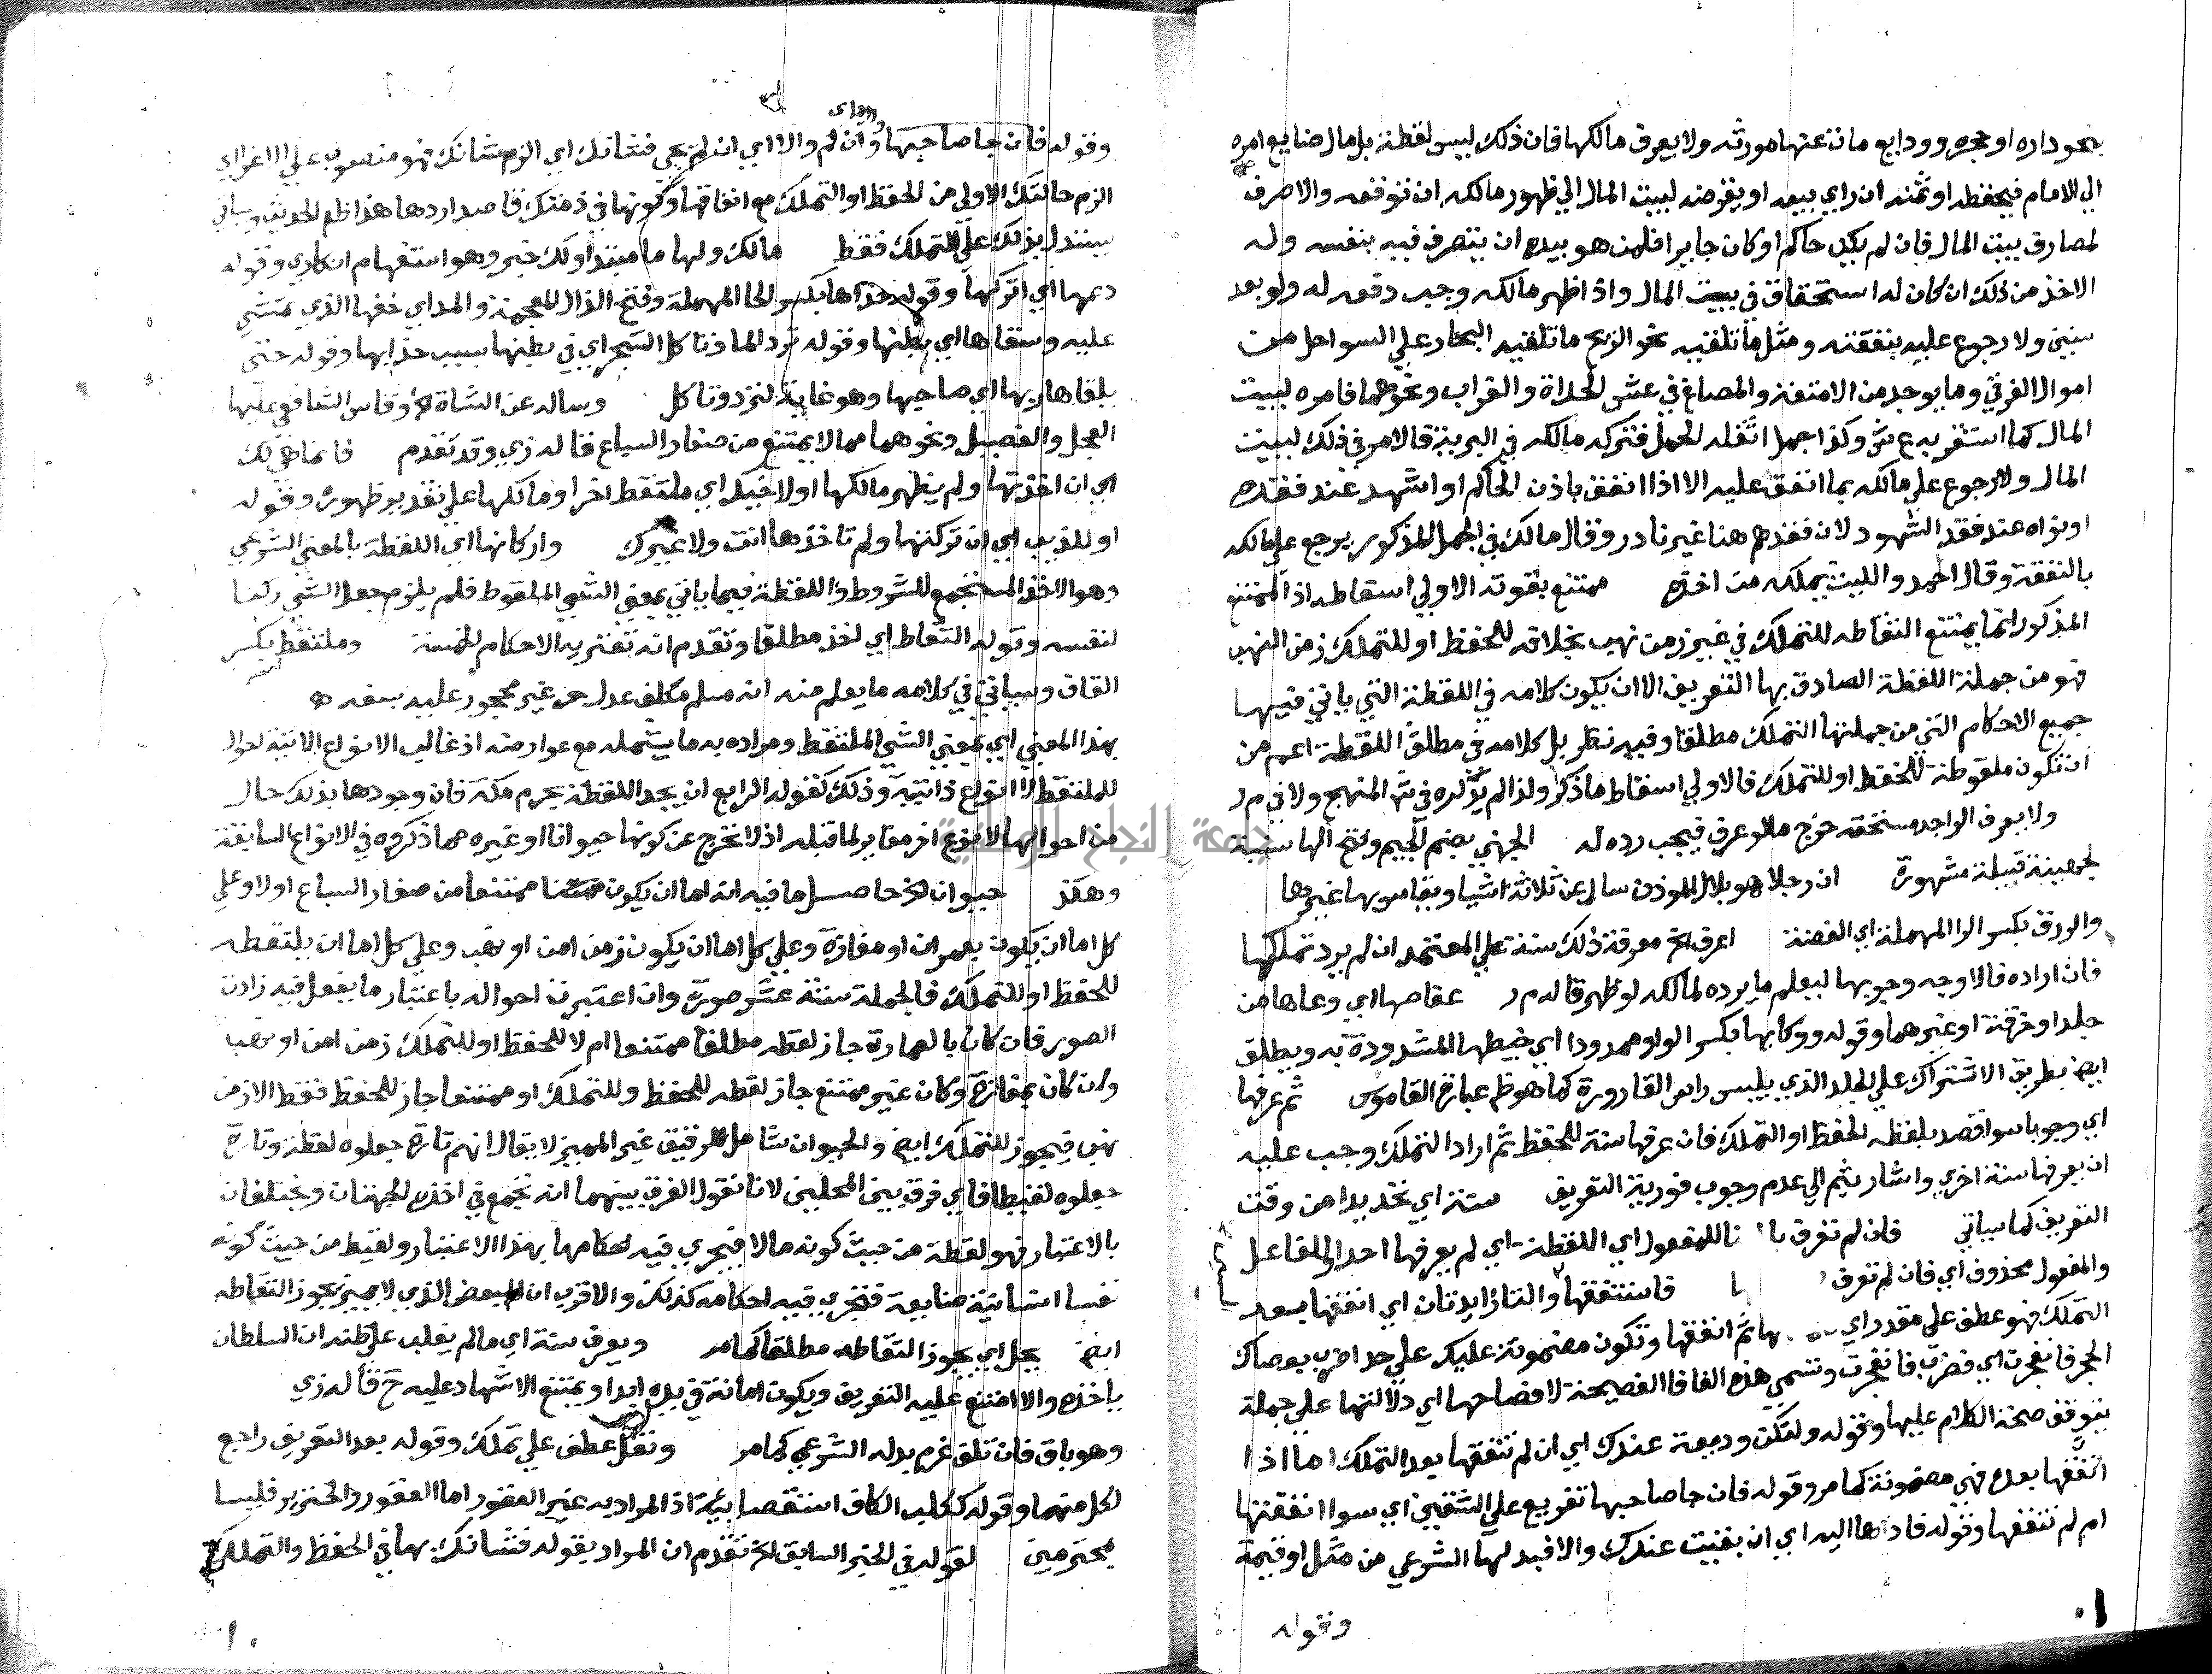 بنحو داره او حجره وودايع مات عنها مورثه ولا يعرف مالكها فان ذلك ليس لقطة بل مال ضايع امره
الي الامام فيحفظه او ثمنه ان راي بيعه او يقرضه لبيت المال الي ظهور مالكه ان توقعه والا صرفه
لمصارف بيت المال فان لم يكن حاكم او كان جايرا فلمن هو بيده ان يتصرف فيه بنفسه وله
الاخذ من ذلك ان كان له استحقاق في بيت المال واذا ظهر مالكه وجب دفعه له ولو بعد
سنين ولا رجوع عليه بنفقته ومثل ما تلقيه نحو الريح ما تلقيه البحار علي السواحل من
اموال الغرقي وما يوجد من الامتعة والمصاغ في عش الحداة والغراب ونحوهما فامره لبيت
المال كما استقر به ع ش وكذا جمل اثقله الحمل فتركه مالكه في البرية فالامر في ذلك لبيت
المال ولا رجوع علي مالكه بما انفق عليه الا اذا انفق باذن الحاكم او اشهد عند فقده
او نواه عند فقد الشهود لان فقدهم هنا غير نادر وقال مالك في الجمل المذكور يرجع علي مالكه
بالنفقة وقال احمد والليث يملكه من اخذه ممتنع بقوته الاولي اسقاطه اذ الممتنع
المذكور انما يمتنع التقاطه للتملك في غير زمن نهب بخلافه للحفظ او للتملك زمن النهب
فهو من جملة اللقطة الصادق بها التعريف الا ان يكون كلامه في اللقطة التي ياتي فيها
جميع الاحكام التي من جملتها التملك مطلقا وفيه نظر بل كلامه في مطلق اللقطة اعم من
ان تكون ملقوطة للحفظ او للتملك فالاولي اسقاط ما ذكر ولذا لم يذكره في ش المنهج ولا في م ر
ولا يعرف الواجد مستحقه خرج ما لو عرف فيجب رده له الجهني بضم الجيم وفتح الها نسبة
لجهينة قبيلة مشهورة ان رجلا هو بلال المؤذن سال عن ثلاثة اشيا ويقاس بها غيرها
والورق بكسر الرا المهملة اي الفضة اعرف الخ معرفة ذلك سنة علي المعتمد ان لم يرد تملكها
فان اراده فالاوجه وجوبها ليعلم ما يرده لمالكه لو ظهر قاله م ر عفاصها اي وعاها من
جلد او خرقة او غيرهما وقوله ووكايها بكسر الواو ممدودا اي خيطها المشدودة به ويطلق
ايض بطريق الاشتراك علي الجلد الذي يلبس راس القارورة كما هو ظم عبارة القاموس ثم عرفها
اي وجوبا سوا قصد بلقطه الحفظ او التملك فان عرفها سنة للحفظ ثم اراد التملك وجب عليه
ان يعرفها سنة اخري واشار بثم الي عدم وجوب فورية التعريف سنة اي تحديدا من وقت
التعريف كما سياتي فان لم تعرف للمفعول اي اللقطة اي لم يعرفها احد او للفاعل
والمفعول محذوف اي فان لم تعرف فاستنفقها والتا زايدتان اي انفقها بعد
التملك فهو عطف علي مقدر اي ثم انفقها وتكون مضمونة عليك علي حد اضرب بعصاك
الحجر فانفجرت اي فضرب فانفجرت وتسمي هذه الفا فا الفصيحة لافصاحها اي دلالتها علي جملة
يتوقف صحة الكلام عليها وقوله ولتكن وديعة عندك اي ان لم تنفقها بعد التملك اما اذا
انفقها بعده فهي مضمونة كما مر وقوله فان جا صاحبها تفريع علي الشقين اي سوا انفقتها
ام لم تنفقها وقوله فادها اليه اي ان بقيت عندك والا فبدلها الشرعي من مثل او قيمة
وقوله
وقوله فان جا صاحبها والا اي ان لم يجي فشانك اي الزم شانك فهو منصوب علي الاغرا اي
الزم حالتك الاولي من الحفظ او التملك مع انفاقها وكونها في ذمتك قاصدا ردها هذا ظم الحديث وسياتي
يستدل بذلك علي التملك فقط مالك ولها ما مبتدا ولك خبر وهو استفهام انكاري وقوله
دعها اي اتركها وقوله حذاها بكسر الحا المهملة وفتح الذال المعجمة والمد اي خفها الذي تمشي
عليه وسقاها اي بطنها وقوله ترد الما وتاكل الشجر اي في بطنها بسبب حذايها وقوله حتي
يلقاها ربها اي صاحبها وهو غاية لترد وتاكل وساله عن الشاة الخ وقاس الشافعي عليها
العجل والفصيل ونحوهما مما لا يمتنع من صغار السباع قاله زي وقد تقدم فانما هي لك
اي ان اخذتها ولم يظهر مالكها او لاخيك اي ملتقط اخر او مالكها علي تقدير ظهوره وقوله
او للذيب اي ان تركتها ولم تاخذها انت ولا غيرك واركانها اي اللقطة بالمعني الشرعي
وهو الاخذ المستجمع للشروط واللقطة فيما ياتي بمعني الشي الملقوط فلم يلزم جعل الشي ركنا
لنفسه وقوله التقاط اي اخذ مطلقا وتقدم انه تعتريه الاحكام الخمسة وملتقط بكسر
القاف وسياتي في كلامه ما يعلم منه انه مسلم مكلف عدل حر غير محجور عليه بسفه
بهذا المعني اي بمعني الشي الملتقط ومراده به ما يشمله مع عوارضه اذ غالب الانواع الاتية احوال
للملتقط لا انواع ذاتية وذلك كقوله الرابع ان يجد اللقطة بحرم مكة فان وجودها بذلك حال
من احوالها لا نوع اخر مغاير لما قبله اذ لا تخرج عن كونها حيوانا او غيره مما ذكروه في الانواع السابقة
وهكذ حيوان الخ حاصل ما فيه انه اما ان يكون ممتنعا من صغار السباع او لا وعلي
كل اما ان يكون بعمران او مفازة وعلي كل اما ان يكون زمن امن او نهب وعلي كل اما ان يلتقطه
للحفظ او للتملك فالجملة ستة عشر صورة وان اعتبرت احواله باعتبار ما يفعل فيه زادت
الصور فان كان بالعمارة جاز لقطه مطلقا ممتنعا ام لا للحفظ او للتملك زمن امن او نهب
وان كان بمفازة وكان غير ممتنع جاز لقطه للحفظ وللتملك او ممتنعا جاز للحفظ فقط الا زمن
نهب فيجوز للتملك ايض والحيوان شامل للرقيق غير المميز لا يقال انهم تارة جعلوه لقطة وتارة
جعلوه لقيطا فاي فرق بين المحلين لانا نقول الفرق بينهما انه تجمع في اخذه الجهتان ويختلفان
بالاعتبار فهو لقطة من حيث كونه مالا فيجري فيه احكامها بهذا الاعتبار ولقيط من حيث كونه
نفسا انسانية ضايعة فتجري فيه احكامه كذلك والاقرب ان المبعض الذي لا يميز يجوز التقاطه
ايض يحل اي يجوز التقاطه مطلقا كما مر ويعرف سنة اي ما لم يغلب علي ظنه ان السلطان
ياخذه والا امتنع عليه التعريف ويكون امانة في يده ابدا ويمتنع الاشهاد عليه ح قاله زي
وهو باق فان تلف غرم بدله الشرعي كما مر ونقل عطف علي تملك وقوله بعد التعريف راجع
لكل منهما وقوله ككلب الكاف استقصايية اذ المراد به غير العقور اما العقور والخنزير فليسا
محترمين لقوله في الخبر السابق الخ تقدم ان المراد بقوله فشانك بها في الحفظ والتملك